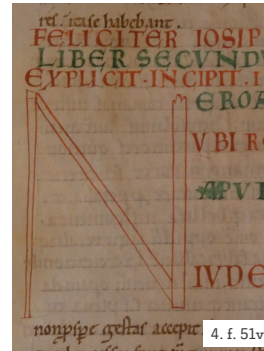 res. itase habebant.
FELICITER IOSIP
LIBER SECVNDV
EXPLICIT·INCIPIT·I
N EROA
VBI RO
APVD
IVDE
non pspe gestas accepit.
4. f. 51v